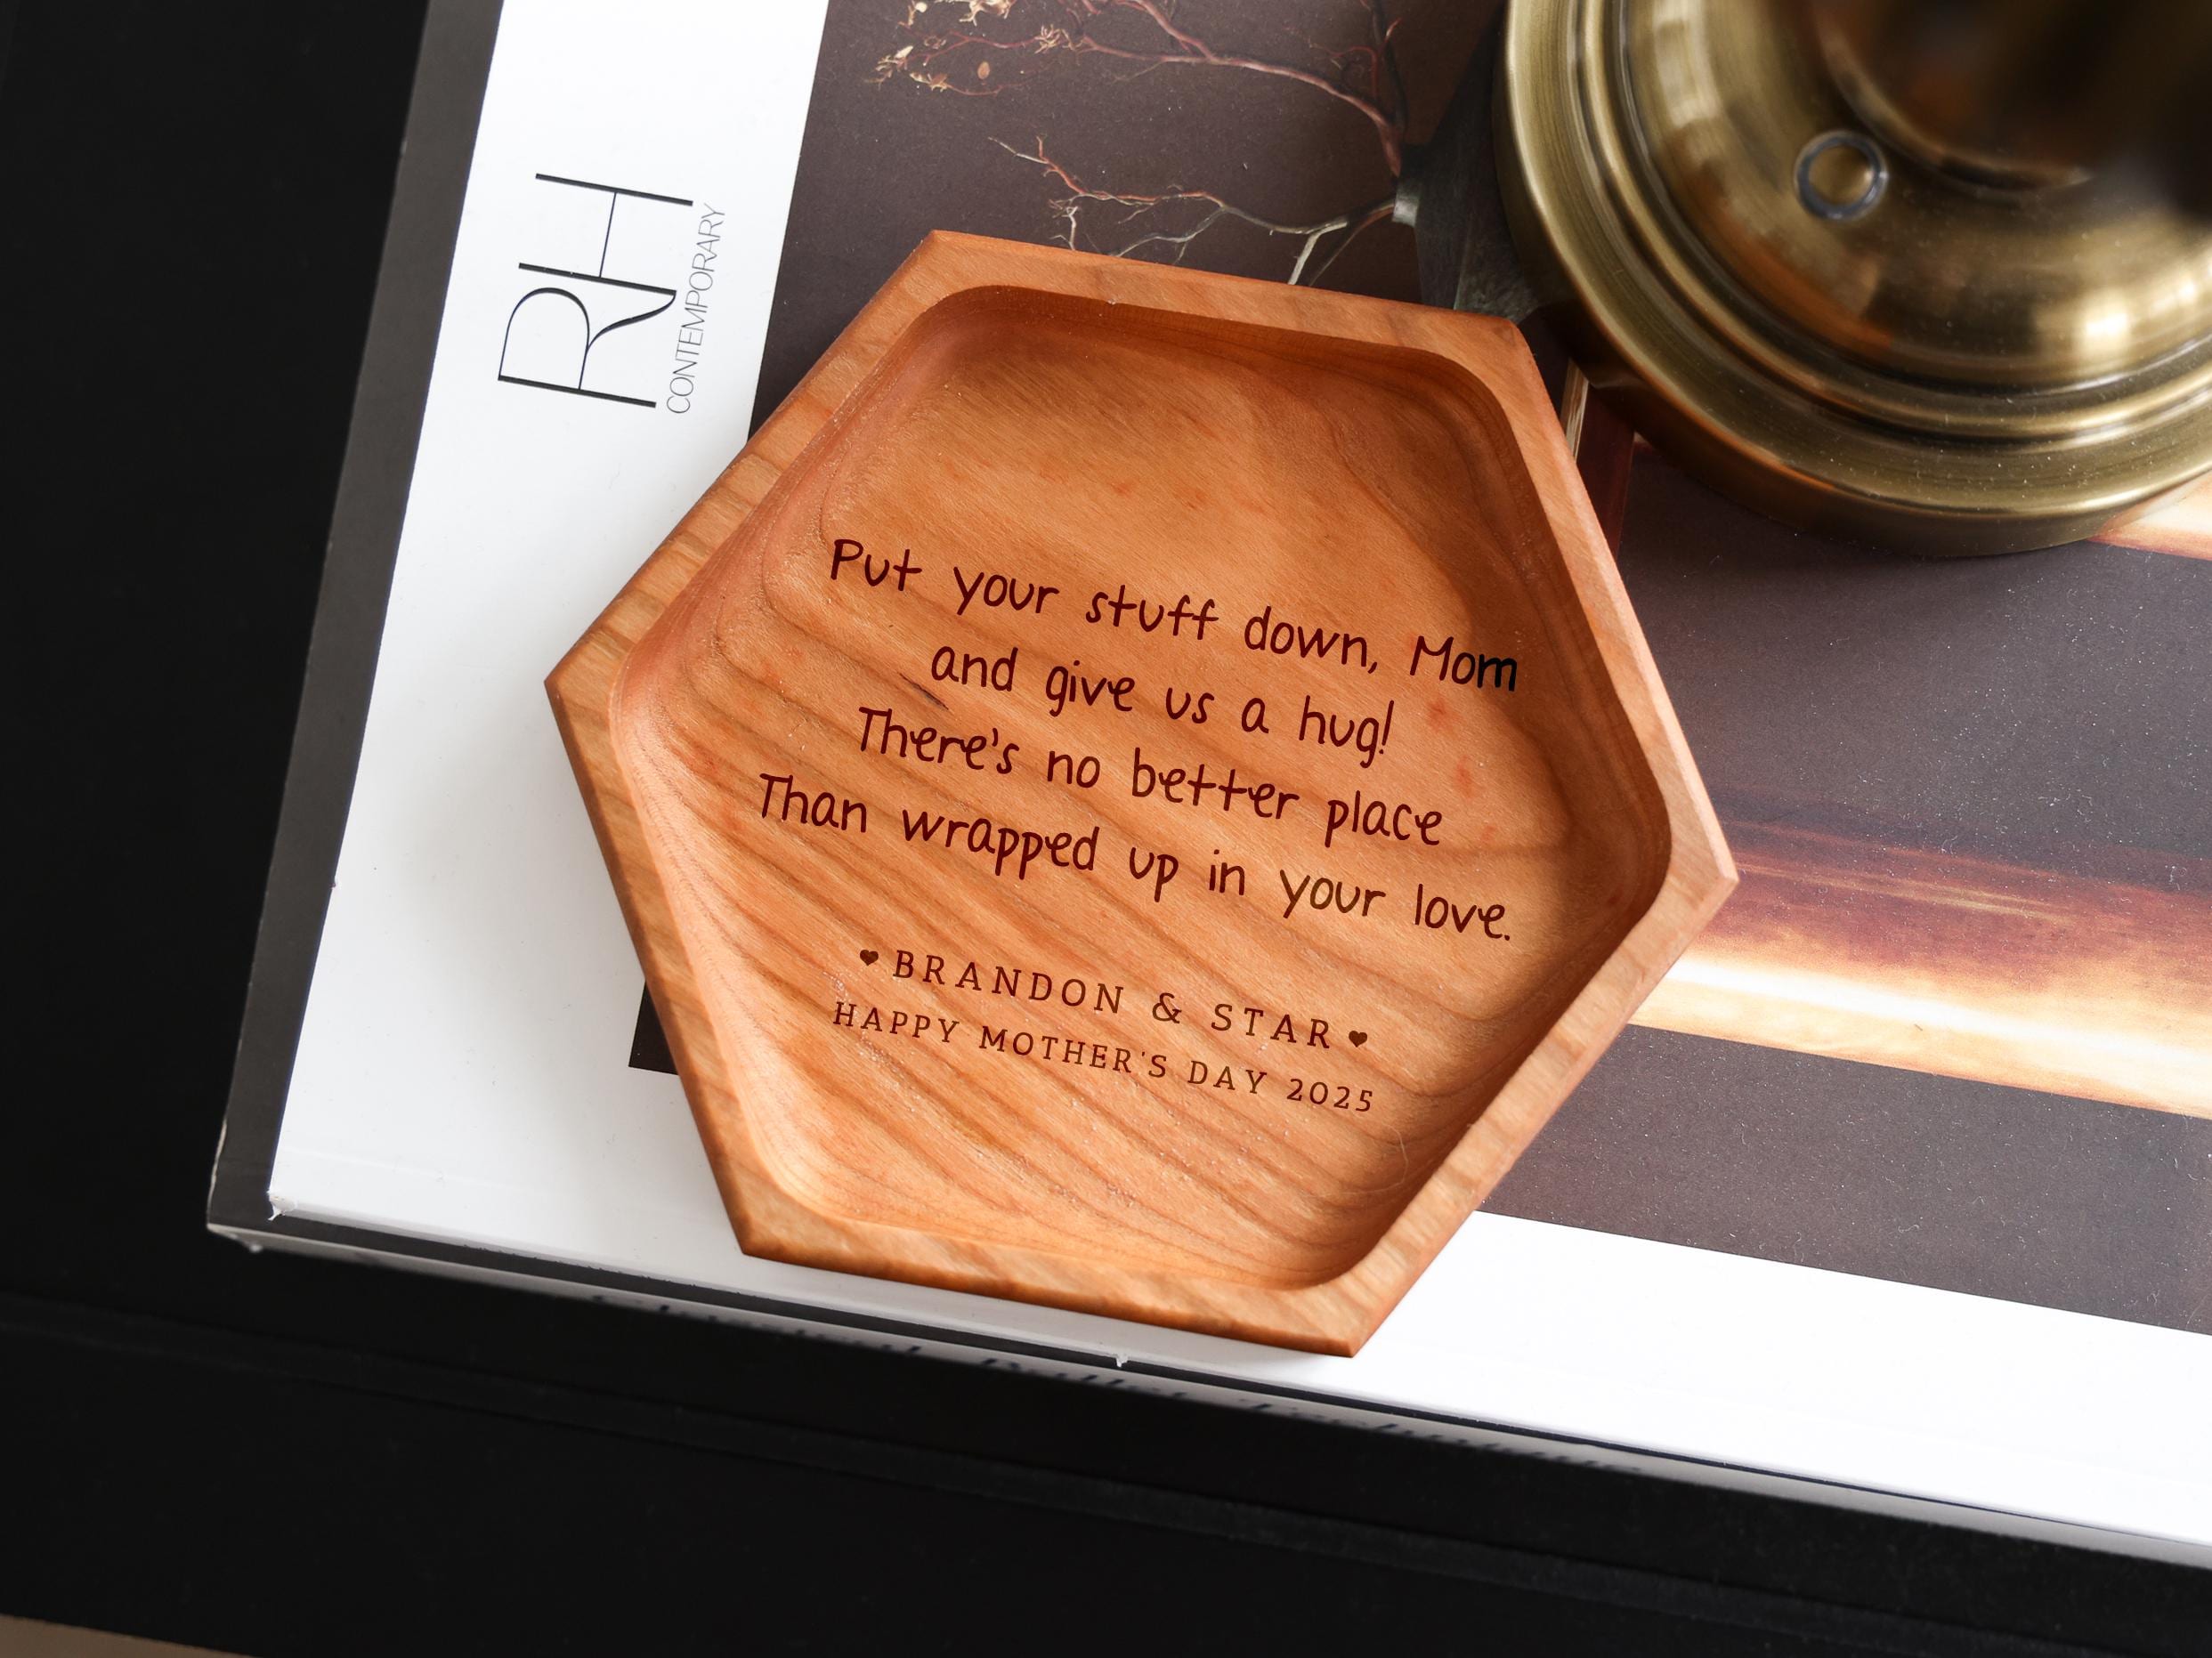 RH
CONTEMPORARY
Put your stuff down, Mom
and give us a hug!
There's no better place
Than wrapped up in your love.
♥ BRANDON & STAR ♥
HAPPY MOTHER'S DAY 2025